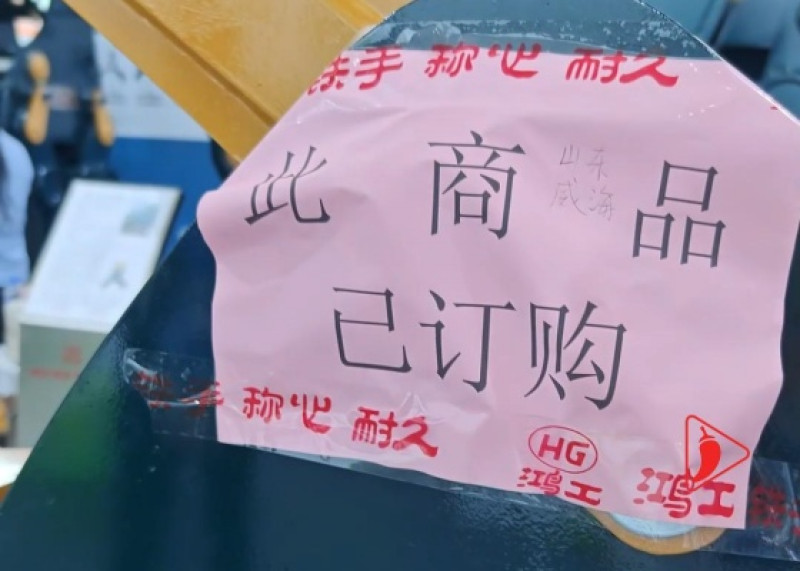 手 称心 耐久
此商品
山东
威海
已订购
手 称心 耐久
HG
鸿工 鸿工